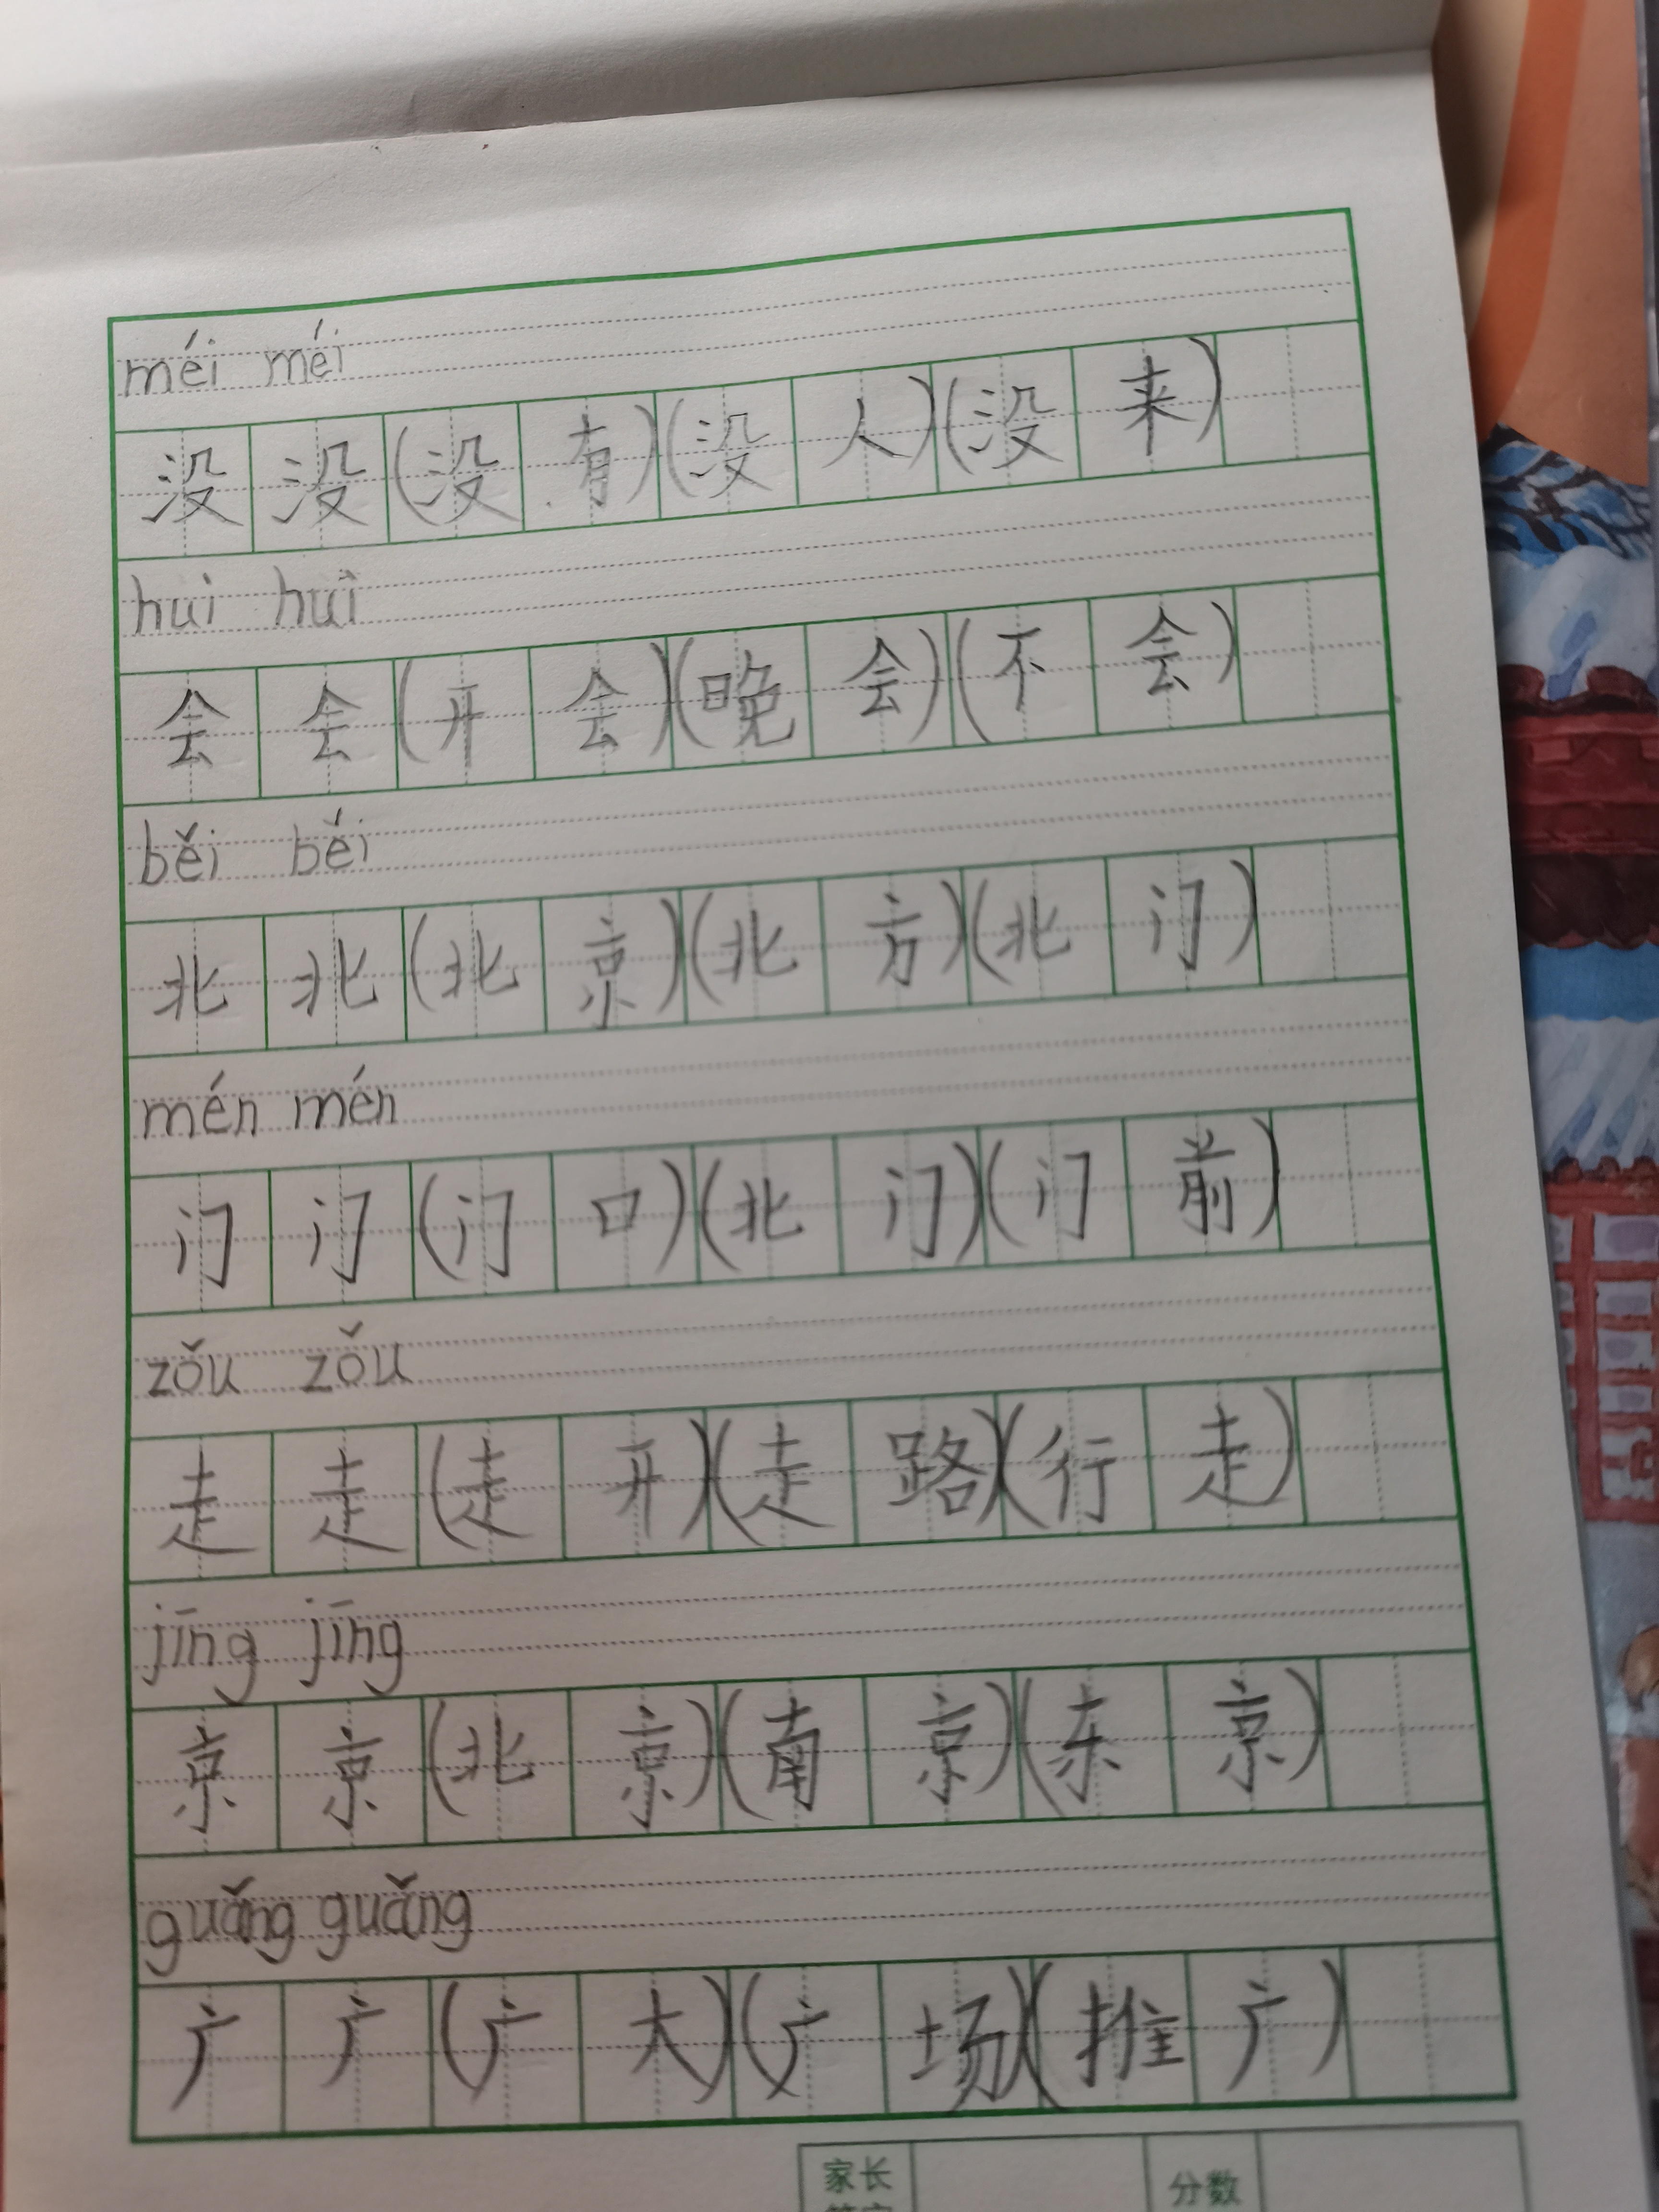 méi méi
没没(没有)(没人)(没来)
huì huì
会会(开会)(晚会)(不会)
běi běi
北北(北京)(北方)(北门)
mén mén
门门(门口)(北门)(门前)
zǒu zǒu
走走(走开)(走路)(行走)
jīng jīng
京京(北京)(南京)(东京)
guǎng guǎng
广广(广大)(广场)(推广)
家长 分数